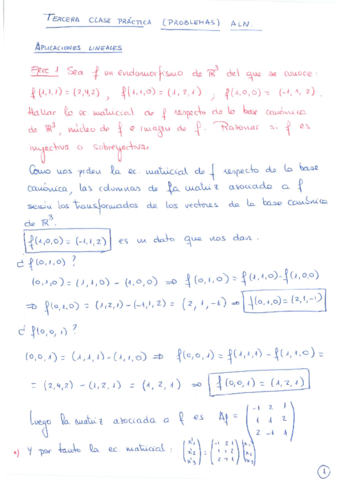 TERCERA CLASE PRÁCTICA (PROBLEMAS) ALN.
APLICACIONES LINEALES
Ejerc 1 Sea f un endomorfismo de ℝ³ del que se conoce:
f(1,1,1) = (2,4,2), f(1,1,0) = (1,2,1), f(1,0,0) = (-1,1,2).
Hallar la ec matricial de f respecto de la base canónica
de ℝ³, núcleo de f e imagen de f. Razonar si f es
inyectiva o sobreyectiva.
Como nos piden la ec matricial de f respecto de la base
canónica, las columnas de la matriz asociada a f
serán los transformados de los vectores de la base canónica
de ℝ³.
f(1,0,0) = (-1,1,2) es un dato que nos dan.
¿ f(0,1,0) ?
(0,1,0) = (1,1,0) - (1,0,0) ⇒ f(0,1,0) = f(1,1,0) - f(1,0,0)
⇒ f(0,1,0) = (1,2,1) - (-1,1,2) = (2,1,-1) ⇒ f(0,1,0) = (2,1,-1)
¿ f(0,0,1) ?
(0,0,1) = (1,1,1) - (1,1,0) ⇒ f(0,0,1) = f(1,1,1) - f(1,1,0) =
= (2,4,2) - (1,2,1) = (1,2,1) ⇒ f(0,0,1) = (1,2,1)
Luego la matriz asociada a f es Af =
-1 2 1
1 1 2
2 -1 1
Y por tanto la ec matricial:
1